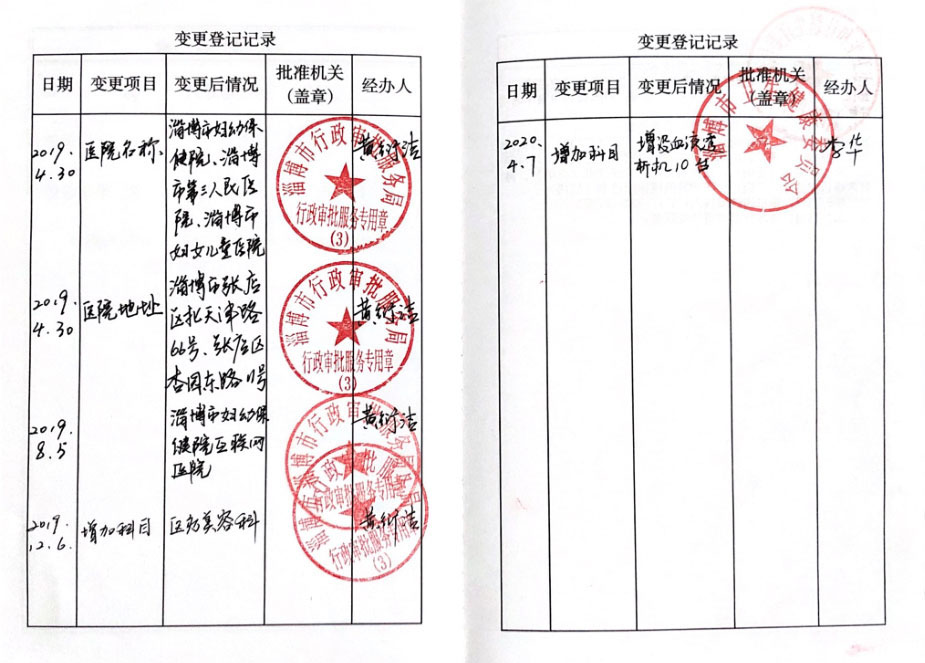 变更登记记录
日期 变更项目 变更后情况 批准机关(盖章) 经办人
2019.4.30 医院名称
淄博市妇幼保
健院、淄博
市第三人民医
院、淄博市
妇女儿童医院
淄博市行政审批服务局
行政审批服务专用章
(3)
2019.4.30 医院地址
淄博市张店
区北天津路
66号、张店区
杏园东路11号
淄博市行政审批服务局
行政审批服务专用章
(3)
2019.8.5
淄博市妇幼保
健院互联网
医院
淄博市行政审批服务局
行政审批服务专用章
2019.12.6. 增加科目 医疗美容科
淄博市行政审批服务局
行政审批服务专用章
(3)
变更登记记录
日期 变更项目 变更后情况 批准机关(盖章) 经办人
2020.4.7 增加科目
增设血液透
析机10台
淄博市卫生健康委员会
李华